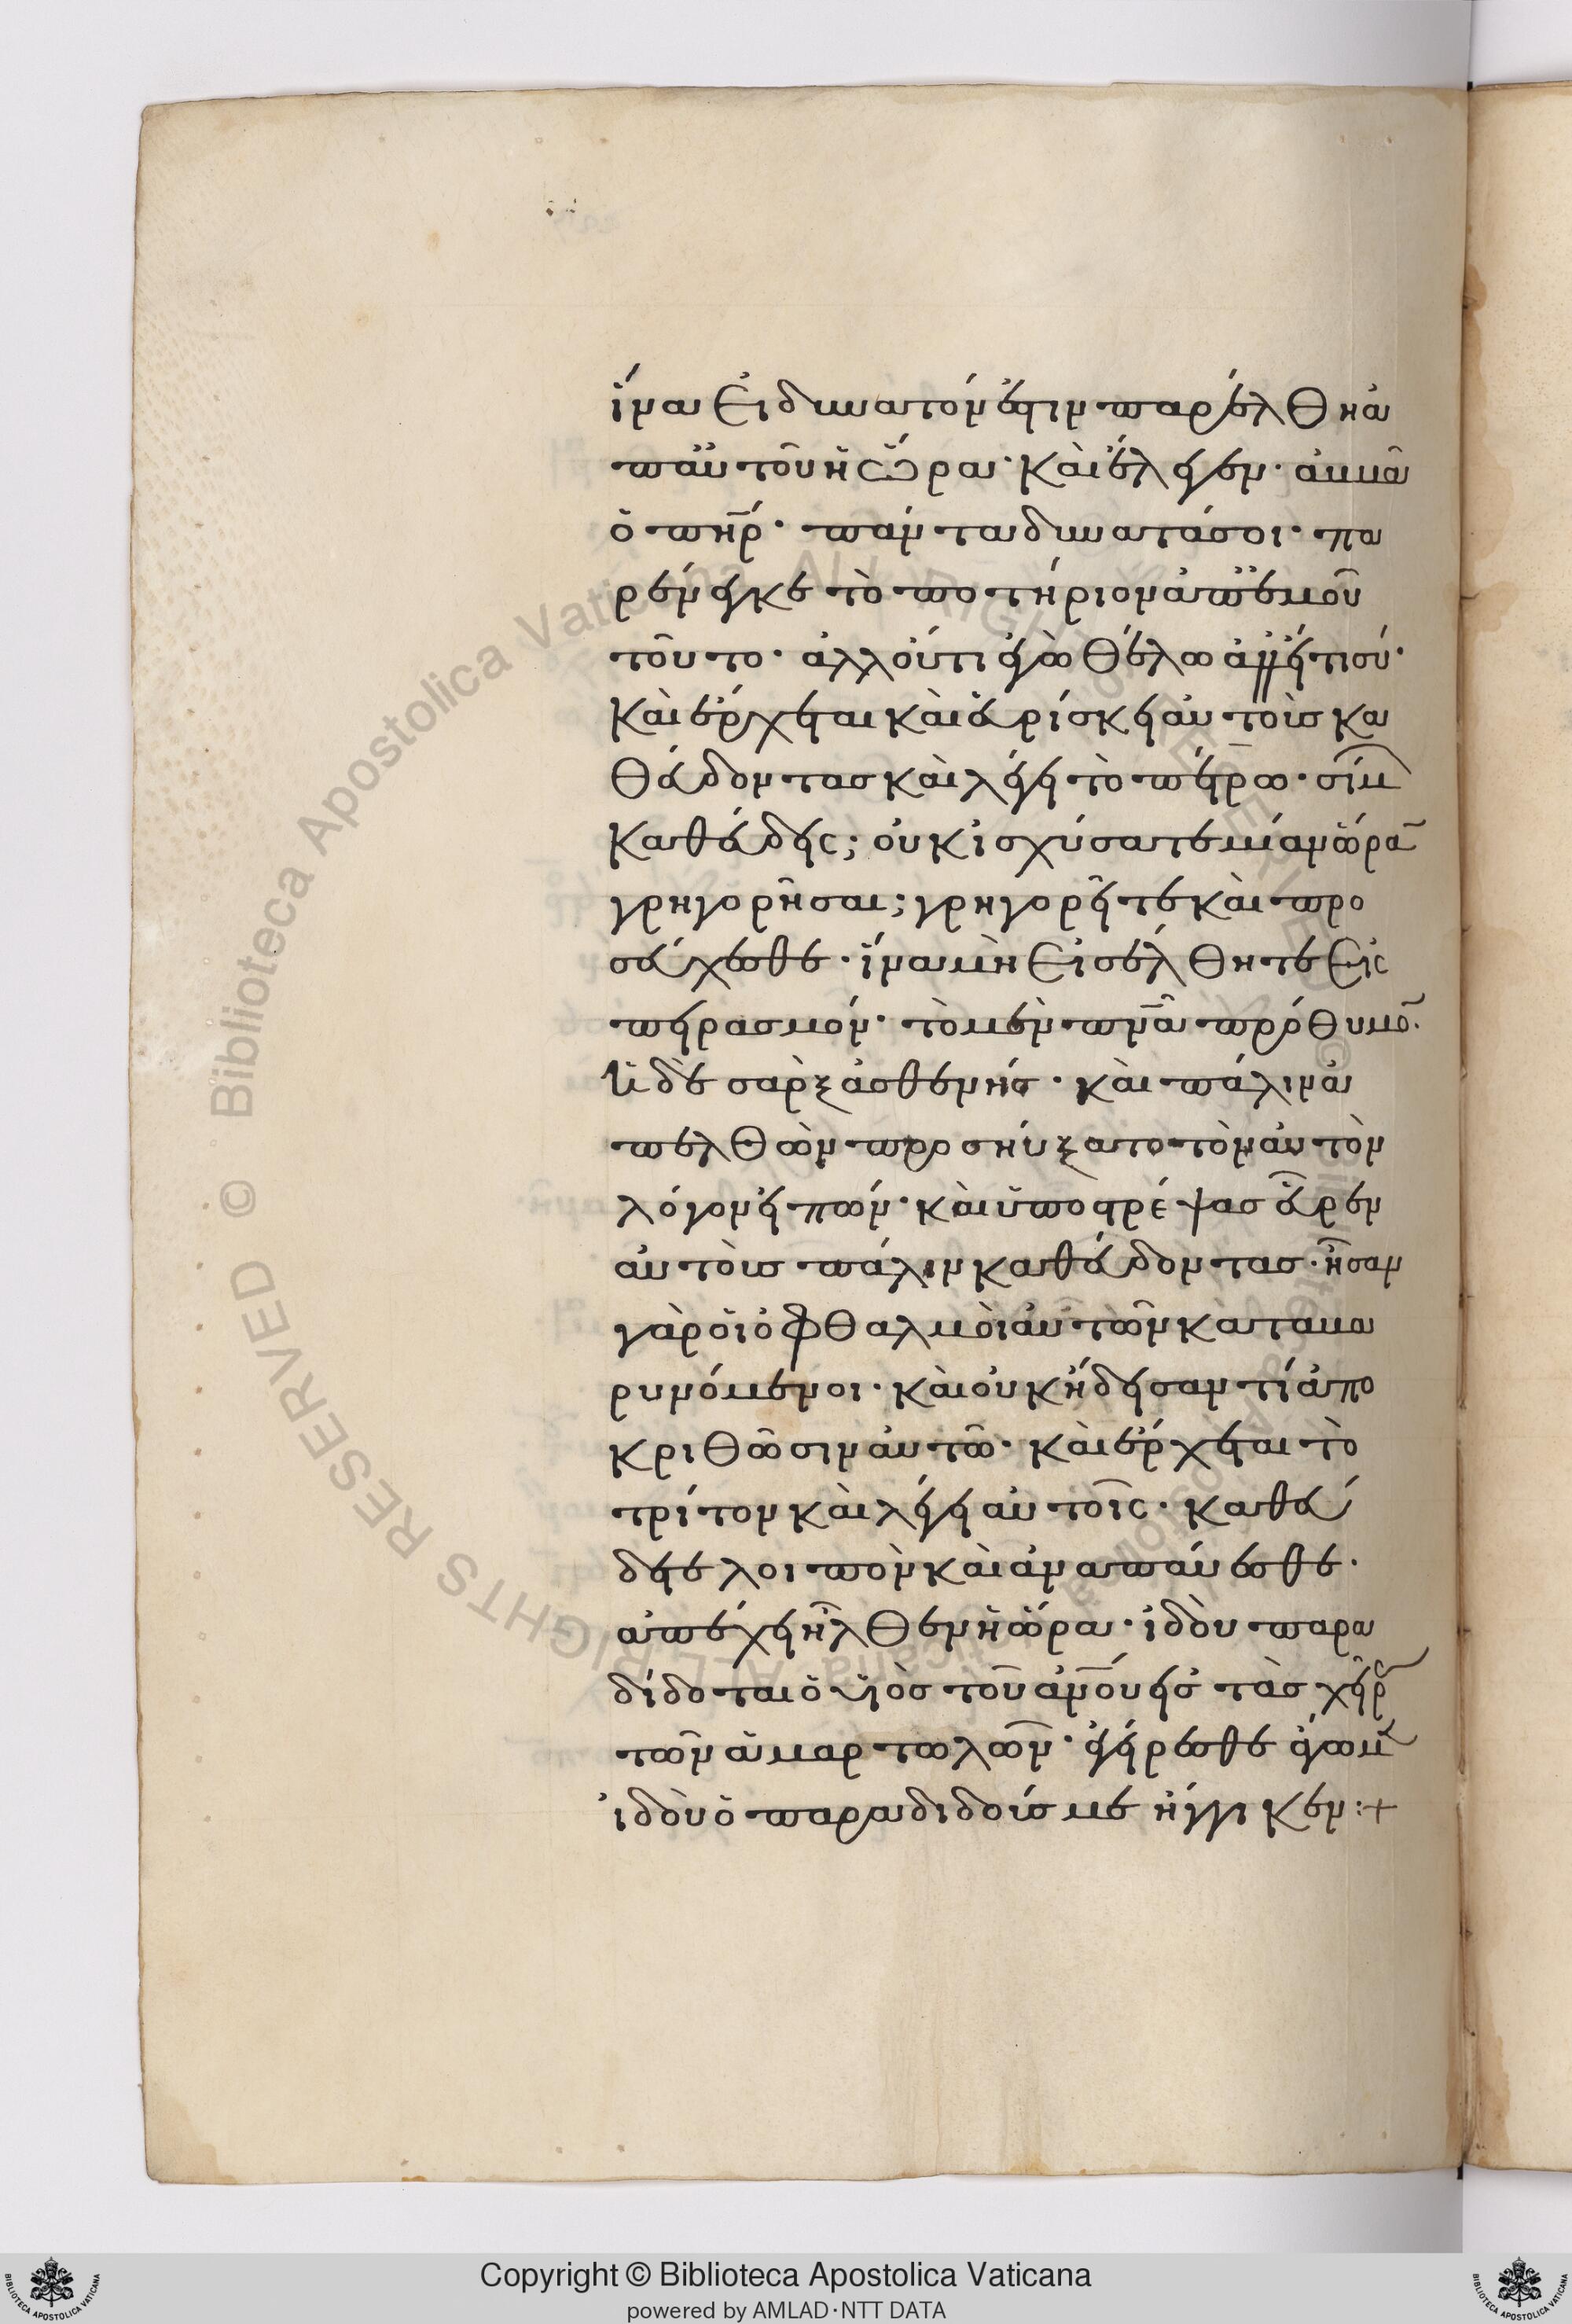 ἵνα εἰ δυνατόν ἐστιν παρέλθη ἀ
π' αὐτοῦ ἡ ὥρα· καὶ ἔλεγεν· ἀββᾶ
ὁ πηρ· πάντα δυνατά σοι· πα
ρένεγκε τὸ ποτήριον ἀπ' ἐμοῦ
τοῦτο· ἀλλ' οὐ τί ἐγὼ θέλω ἀλλ' εἴ τι σύ·
καὶ ἔρχεται καὶ εὑρίσκει αὐτοὺς κα
θεύδοντας καὶ λέγει τῶ πέτρω· σίμ
καθεύδεις; οὐκ ἰσχύσατε μίαν ὥρα
γρηγορῆσαι; γρηγορεῖτε καὶ προ
σεύχεσθε· ἵνα μὴ εἰσέλθητε εἰς
πειρασμόν· τὸ μὲν πνα πρόθυμο·
ἡ δὲ σὰρξ ἀσθενής· καὶ πάλιν ἀ
πελθὼν προσηύξατο τὸν αὐτὸν
λόγον εἰπών· καὶ ὑποστρέψας εὗρεν
αὐτοὺς πάλιν καθεύδοντας· ἦσαν
γὰρ οἱ ὀφθαλμοὶ αὐτῶν καταβα
ρυνόμενοι· καὶ οὐκ ἤδεισαν τί ἀπο
κριθῶσιν αὐτῶ· καὶ ἔρχεται τὸ
τρίτον καὶ λέγει αὐτοῖς· καθεύ
δετε λοιπὸν καὶ ἀναπαύεσθε·
ἀπέχει ἦλθεν ἡ ὥρα· ἰδοὺ παρα
δίδοται ὁ υἱὸς τοῦ ανου εἰς τὰς χεῖρ
τῶν ἁμαρτωλῶν· ἐγείρεσθε ἄγωμ
ἰδοὺ ὁ παραδιδούς με ἤγγικεν:+
© Biblioteca Apostolica Vaticana ALL RIGHTS RESERVED
Copyright © Biblioteca Apostolica Vaticana
powered by AMLAD·NTT DATA